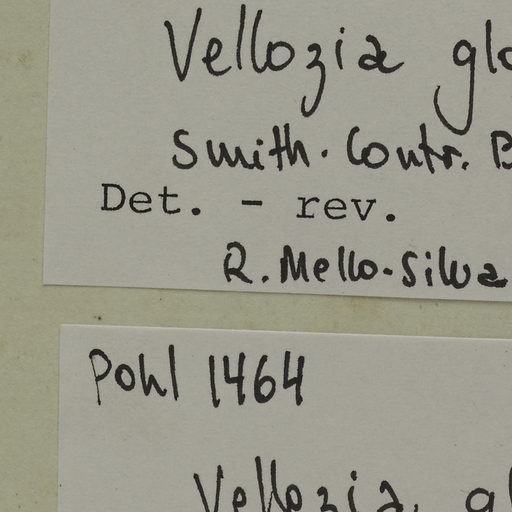 Vellozia glo
Smith. Contr. B
Det. - rev.
R. Mello-Silva
Pohl 1464
Vellozia gl